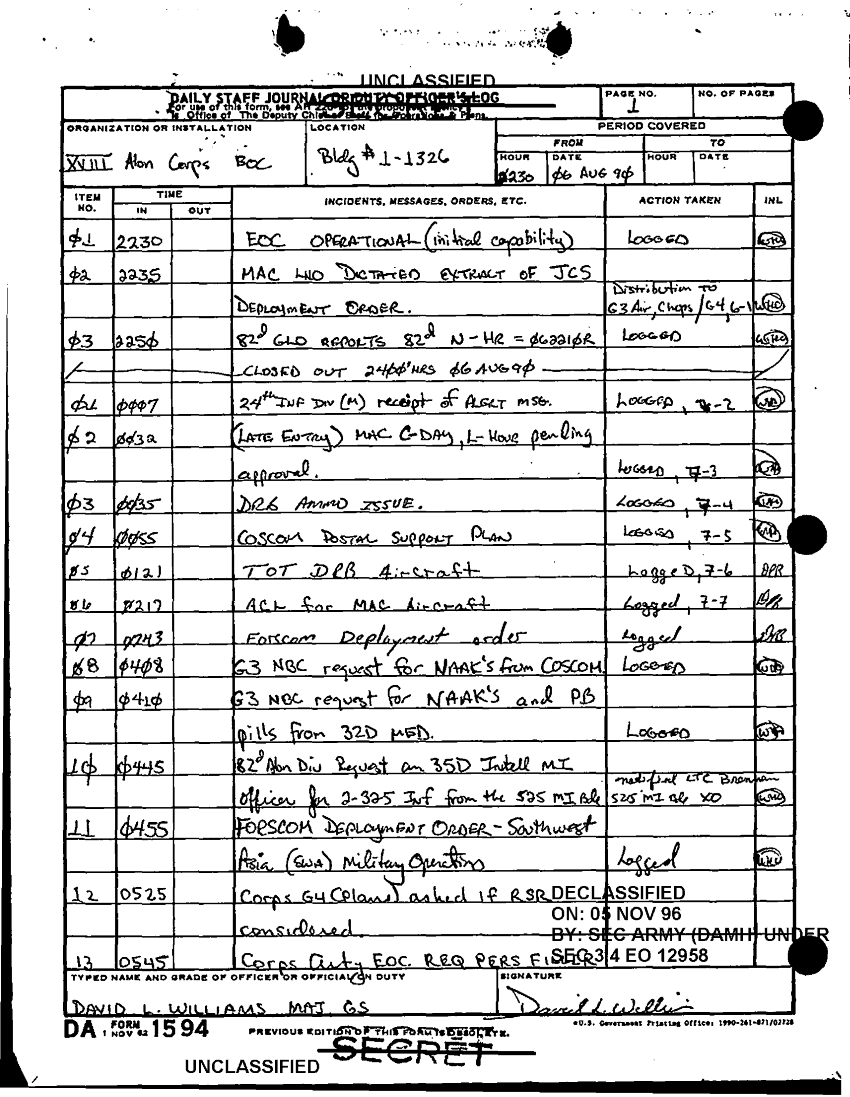 UNCLASSIFIED
DAILY STAFF JOURNAL OR DUTY OFFICER'S LOG
For use of this form, see AR 220- the proponent agency
is Office of The Deputy Chief of Staff for Operations & Plans.
PAGE NO.
1
NO. OF PAGES
ORGANIZATION OR INSTALLATION
XVIII Abn Corps EOC
LOCATION
Bldg # 1-1326
PERIOD COVERED
FROM TO
HOUR DATE HOUR DATE
2230 Ø6 AUG 9Ø
ITEM NO. TIME IN OUT INCIDENTS, MESSAGES, ORDERS, ETC. ACTION TAKEN INL
Ø1 2230 EOC OPERATIONAL (initial capability) LOGGED
Ø2 2235 MAC LNO DICTATED EXTRACT OF JCS
DEPLOYMENT ORDER. Distribution to G3 Air, Chops/G4, 6-1
Ø3 225Ø 82d GLO REPORTS 82d N-HR = Ø6221ØR LOGGED
CLOSED OUT 24ØØ HRS Ø6 AUG 9Ø
Ø1 ØØØ7 24th INF DIV (M) receipt of ALERT MSG. LOGGED, 7-2
Ø2 ØØ32 (LATE ENTRY) MAC C-DAY, L-Hour pending
approval. LOGGED, 7-3
Ø3 ØØ35 DRB AMMO ISSUE. LOGGED, 7-4
Ø4 ØØ55 COSCOM POSTAL SUPPORT PLAN LOGGED, 7-5
Ø5 Ø121 TOT DRB Aircraft Logged, 7-6
Ø6 Ø217 ACL for MAC Aircraft Logged, 7-7
Ø7 Forscom Deployment order Logged
Ø8 Ø4Ø8 G3 NBC request for NAAK's from COSCOM LOGGED
Ø9 Ø41Ø G3 NBC request for NAAK'S and PB
pills from 32D MED. LOGGED
1Ø Ø445 82d Abn Div Request an 35D Intell MI
officer for 2-325 Inf from the 525 MI Bde notified LTC Brennan 525 MI Bde XO
11 Ø455 FORSCOM DEPLOYMENT ORDER - Southwest
Asia (SWA) Military Operations Logged
12 0525 Corps G4 (Plans) asked if RSR
considered.
13 0545 Corps Arty EOC. REQ PERS
DECLASSIFIED
ON: 05 NOV 96
BY: SEC ARMY (DAMH) UNDER
SEC 3 4 EO 12958
TYPED NAME AND GRADE OF OFFICER OR OFFICIAL ON DUTY
DAVID L. WILLIAMS MAJ GS
SIGNATURE
David L. Williams
DA FORM 1 NOV 62 1594
PREVIOUS EDITION OF THIS FORM IS OBSOLETE.
*U.S. Government Printing Office: 1990-261-871/02728
SECRET
UNCLASSIFIED